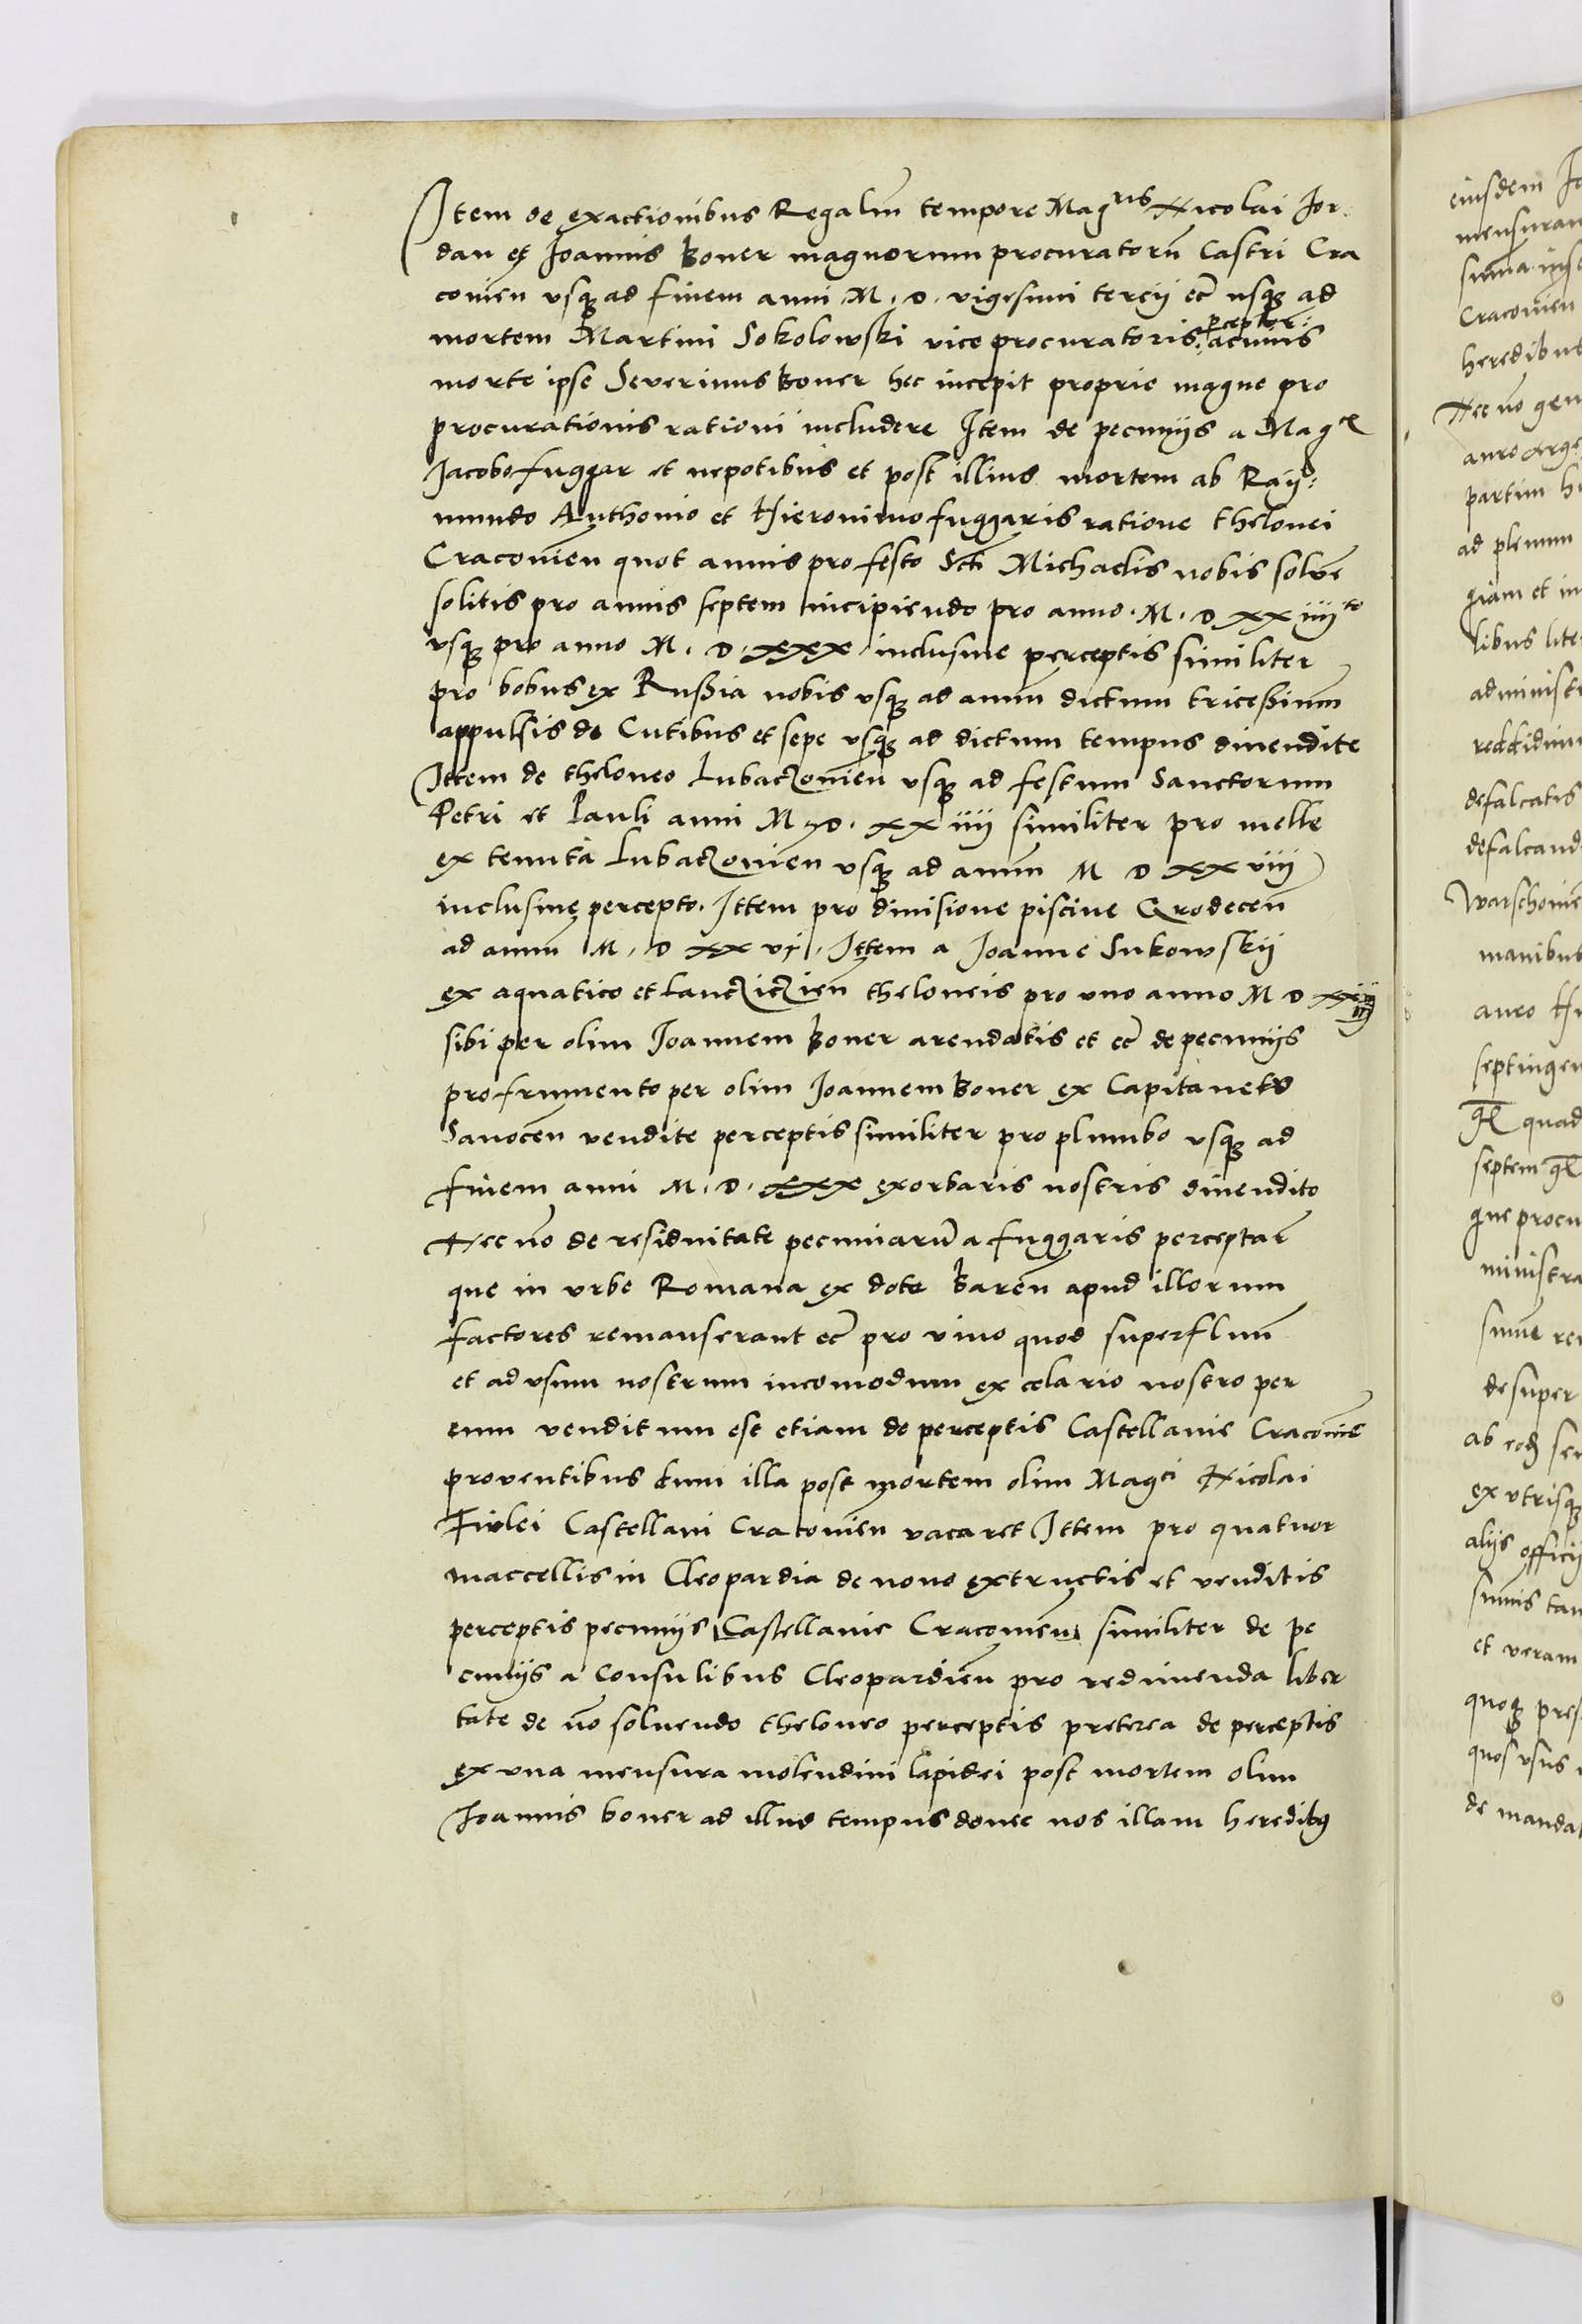 Item de exactionibus Regalm̃ tempore Magcis Nicolai Jor
dan et Joannis Boner magnorum procuratorũ Castri Cra
couieñ vsq̃ ad finem anni M. D. vigesimi tercij ec̃ usq̃ ad
mortem Martini Sokolowski vice procuratoris p̱ceptor: acuius
morte ipse Seuerinus Boner hec incepit proprie magne pro
procurationis rationi includere Item de pecunijs a Magco
Jacobo fuggar et nepotibus et post illius mortem ab Ray:
mundo Anthonio et Hieronimo fuggaris ratione thelonei
Cracouieñ quot annis pro festo Scti Michaelis nobis soluẽ
solitis pro annis septem incipiendo pro anno. M. D. XX iiij to
vsq̃ pro anno M. D. XXX. inclusiue perceptis similiter
pro bobus ex Russia nobis vsq̃ ad annũ dictum tricessimũ
appulsis de Cutibus et sepe vsq̃ ad dictum tempus diuendite
Ittem de theloneo Lubaczouieñ vsq̃ ad festum Sanctorum
Petri et Pauli anni M D. XX iiij similiter pro melle
ex tenuta Lubaczouieñ vsq̃ ad annũ M D XX viij
inclusiue percepto. Ittem pro dimisione piscine Grodeceñ
ad annũ M. D XX vi. Ittem a Joanne Sukowskij
ex aquatico et Lancziczieñ theloneis pro vno anno M D XX
sibi per olim Joannem Boner arendatis et ec̃ de pecunijs
pro frumento per olim Joannem Boner ex Capitaneto
Sanoceñ vendite perceptis similiter pro plumbo vsq̃ ad
finem anni M. D. XXX exorbaris nostris diuendito
Nec nõ de residuitate pecuniarũ a fuggaris perceptar̃
que in vrbe Romana ex dote Bareñ apud illorum
factores remanserant ec̃ pro vino quod superfluũ
et ad vsum nostrum incomodum ex celario nostro per
eum venditum est etiam de perceptis Castellanie Cracouieñ
prouentibus dum illa post mortem olim Magci Nicolai
Firlei Castellani Cracouieñ vacaret Ittem pro quatuor
maccellis in Cleopardia de nouo extructis et venditis
perceptis pecunijs Castellanie Cracouieñ similiter de pe
cunijs a Consulibus Cleopardieñ pro redimenda liber
tate de nõ soluendo theloneo perceptis preterea de perceptis
ex vna mensura molendini lapidei post mortem olim
Joannis boner ad illud tempus donec nos illam heredibus
eiusdem Jo
mensuram
Cracouieñ
heredibus
Nec nõ gen
auro arge
partim
ad plenum
giam et in
libus lite
administr
reddidim
defalcatis
defalcand
Warschouieñ
manibus
aureo
septingen
quad
septem
que procu
ministra
sum̃e re
de super
ab eod̃
ex vtrisq̃
alijs officij
sum̃is tan
et veram
quoq̃ pres
quos vsus
de manda